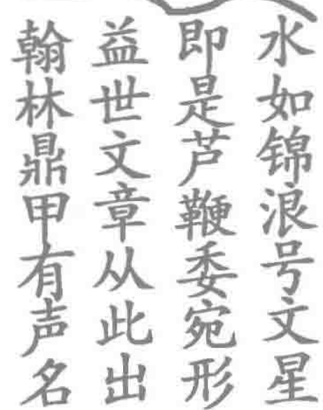 水如锦浪号文星
即是芦鞭委宛形
益世文章从此出
翰林鼎甲有声名